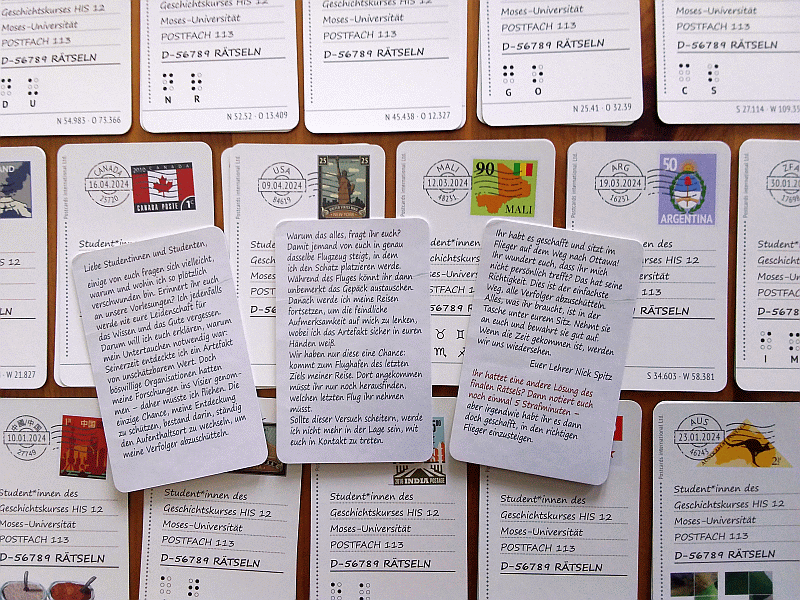 Geschichtskurses HIS 12
Moses-Universität
POSTFACH 113
D-56789 RÄTSELN
D U
N 54.983 · O 73.366
Geschichtskurses HIS 12
Moses-Universität
POSTFACH 113
D-56789 RÄTSELN
N R
N 52.52 · O 13.409
Geschichtskurses HIS 12
Moses-Universität
POSTFACH 113
D-56789 RÄTSELN
N 45.438 · O 12.327
Geschichtskurses HIS 12
Moses-Universität
POSTFACH 113
D-56789 RÄTSELN
G O
N 25.41 · O 32.39
Geschichtskurses HIS 12
Moses-Universität
POSTFACH 113
D-56789 RÄTSELN
C S
S 27.114 · W 109.35
HIS 12
N 21.827
Postcards international Ltd
CANADA
16.04.2024
23720
2010 CANADA
CANADA POSTE 1c
Student*innen des
USA
09.04.2024
84619
25 25
NEW YORK
MALI
12.03.2024
48231
90
MALI
Student*innen des
HIS 12
♉ ♊
♏
Postcards international Ltd
ARG
19.03.2024
16251
50
ARGENTINA
Student*innen des
HIS 12
S 34.603 · W 58.381
Postcards international Ltd
ZFA
30.01.
Student*innen
Geschichtskurses
Moses-Universität
POSTFACH 113
D-56789
I M
Liebe Studentinnen und Studenten,
einige von euch fragen sich vielleicht,
warum und wohin ich so plötzlich
verschwunden bin. Erinnert ihr euch
an unsere Vorlesungen? Ich jedenfalls
werde nie eure Leidenschaft für
das Wissen und das Gute vergessen.
Darum will ich euch erklären, warum
mein Untertauchen notwendig war:
Seinerzeit entdeckte ich ein Artefakt
von unschätzbarem Wert. Doch
böswillige Organisationen hatten
meine Forschungen ins Visier genom-
men – daher musste ich fliehen. Die
einzige Chance, meine Entdeckung
zu schützen, bestand darin, ständig
den Aufenthaltsort zu wechseln, um
meine Verfolger abzuschütteln.
Warum das alles, fragt ihr euch?
Damit jemand von euch in genau
dasselbe Flugzeug steigt, in dem
ich den Schatz platzieren werde.
Während des Fluges könnt ihr dann
unbemerkt das Gepäck austauschen.
Danach werde ich meine Reisen
fortsetzen, um die feindliche
Aufmerksamkeit auf mich zu lenken,
wobei ich das Artefakt sicher in euren
Händen weiß.
Wir haben nur diese eine Chance:
kommt zum Flughafen des letzten
Ziels meiner Reise. Dort angekommen
müsst ihr nur noch herausfinden,
welchen letzten Flug ihr nehmen
müsst.
Sollte dieser Versuch scheitern, werde
ich nicht mehr in der Lage sein, mit
euch in Kontakt zu treten.
Ihr habt es geschafft und sitzt im
Flieger auf dem Weg nach Ottawa!
Ihr wundert euch, dass ihr mich
nicht persönlich trefft? Das hat seine
Richtigkeit. Dies ist der einfachste
Weg, alle Verfolger abzuschütteln.
Alles, was ihr braucht, ist in der
Tasche unter eurem Sitz. Nehmt sie
an euch und bewahrt sie gut auf.
Wenn die Zeit gekommen ist, werden
wir uns wiedersehen.
Euer Lehrer Nick Spitz
Ihr hattet eine andere Lösung des
finalen Rätsels? Dann notiert euch
noch einmal 5 Strafminuten –
aber irgendwie habt ihr es dann
doch geschafft, in den richtigen
Flieger einzusteigen.
中国/中国
10.01.2024
27749
中国
Student*innen des
Geschichtskurses HIS 12
Moses-Universität
POSTFACH 113
D-56789 RÄTSELN
Student*innen des
Geschichtskurses HIS 12
Moses-Universität
POSTFACH 113
D-56789 RÄTSELN
2010 INDIA POSTAGE
Student*innen des
Geschichtskurses HIS 12
Moses-Universität
POSTFACH 113
D-56789 RÄTSELN
Student*innen des
Geschichtskurses HIS 12
Moses-Universität
POSTFACH 113
D-56789 RÄTSELN
Postcards international Ltd
AUS
23.01.2024
46245
Student*innen des
Geschichtskurses HIS 12
Moses-Universität
POSTFACH 113
D-56789 RÄTSELN